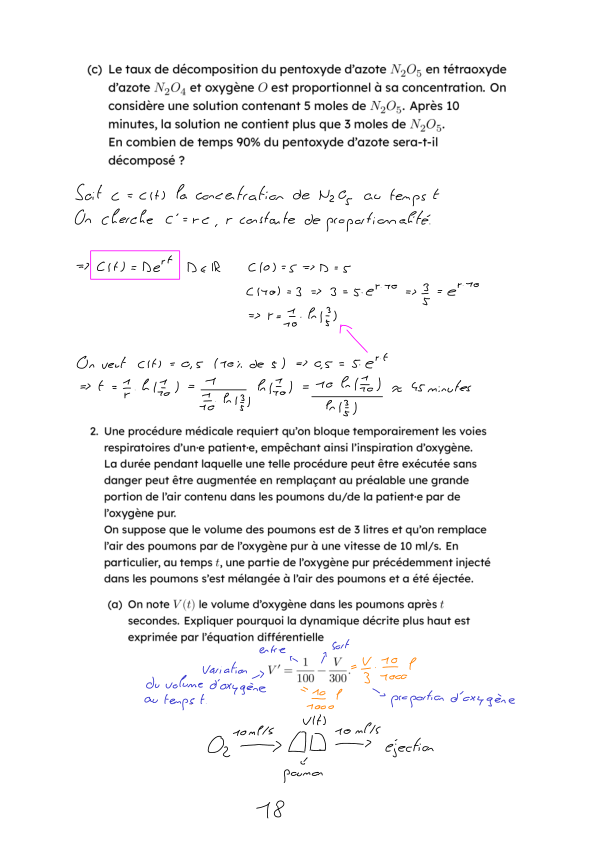 (c) Le taux de décomposition du pentoxyde d'azote N₂O₅ en tétraoxyde
d'azote N₂O₄ et oxygène O est proportionnel à sa concentration. On
considère une solution contenant 5 moles de N₂O₅. Après 10
minutes, la solution ne contient plus que 3 moles de N₂O₅.
En combien de temps 90% du pentoxyde d'azote sera-t-il
décomposé ?
Soit C = C(t) la concentration de N₂O₅ au temps t
On cherche C' = rC, r constante de proportionnalité.
=> C(t) = De^{rt} D ∈ ℝ C(0) = 5 => D = 5
C(10) = 3 => 3 = 5·e^{r·10} => 3/5 = e^{r·10}
=> r = 1/10 · ln(3/5)
On veut C(t) = 0,5 (10% de 5) => 0,5 = 5·e^{rt}
=> t = 1/r · ln(1/10) = 1/(1/10 · ln(3/5)) ln(1/10) = 10 ln(1/10)/ln(3/5) ≈ 45 minutes
2. Une procédure médicale requiert qu'on bloque temporairement les voies
respiratoires d'un·e patient·e, empêchant ainsi l'inspiration d'oxygène.
La durée pendant laquelle une telle procédure peut être exécutée sans
danger peut être augmentée en remplaçant au préalable une grande
portion de l'air contenu dans les poumons du/de la patient·e par de
l'oxygène pur.
On suppose que le volume des poumons est de 3 litres et qu'on remplace
l'air des poumons par de l'oxygène pur à une vitesse de 10 ml/s. En
particulier, au temps t, une partie de l'oxygène pur précédemment injecté
dans les poumons s'est mélangée à l'air des poumons et a été éjectée.
(a) On note V(t) le volume d'oxygène dans les poumons après t
secondes. Expliquer pourquoi la dynamique décrite plus haut est
exprimée par l'équation différentielle
entre sort
Variation V' = 1/100 − V/300. = V/3 · 10/1000 l
du volume d'oxygène = 10/1000 l proportion d'oxygène
au temps t
V(t)
O₂ 10ml/s 10ml/s éjection
poumon
18